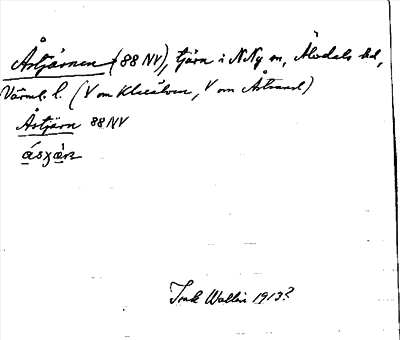 Åstjärnen (88 NV), tjärn i N Ny sn, Älvdals hd,
Värml. l. (V om Klarälven, V om Åstrand)
Åstjärn 88 NV
Josk Wallin 1913?